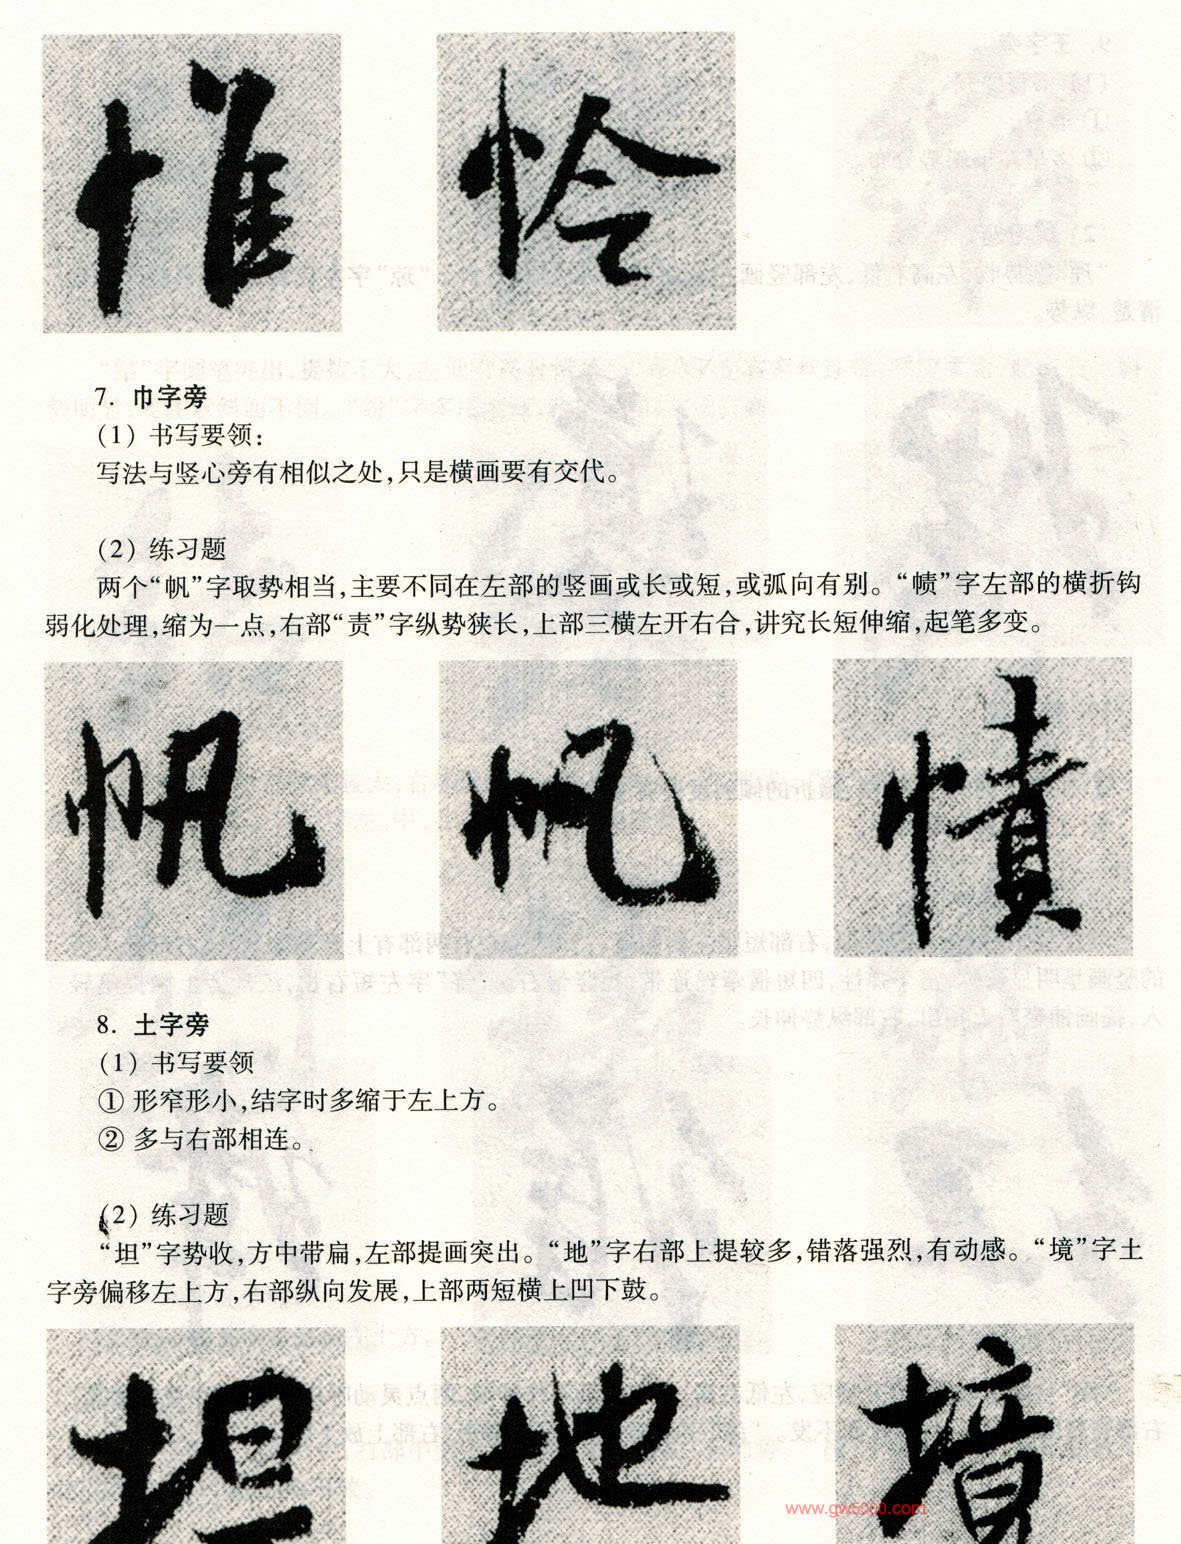 惟 怜
7. 巾字旁
(1) 书写要领:
写法与竖心旁有相似之处,只是横画要有交代。
(2) 练习题
两个“帆”字取势相当,主要不同在左部的竖画或长或短,或弧向有别。“帻”字左部的横折钩
弱化处理,缩为一点,右部“责”字纵势狭长,上部三横左开右合,讲究长短伸缩,起笔多变。
帆 帆 幘
8. 土字旁
(1) 书写要领
① 形窄形小,结字时多缩于左上方。
② 多与右部相连。
(2) 练习题
“坦”字势收,方中带扁,左部提画突出。“地”字右部上提较多,错落强烈,有动感。“境”字土
字旁偏移左上方,右部纵向发展,上部两短横上凹下鼓。
坦 地 境
www.gw5000.com